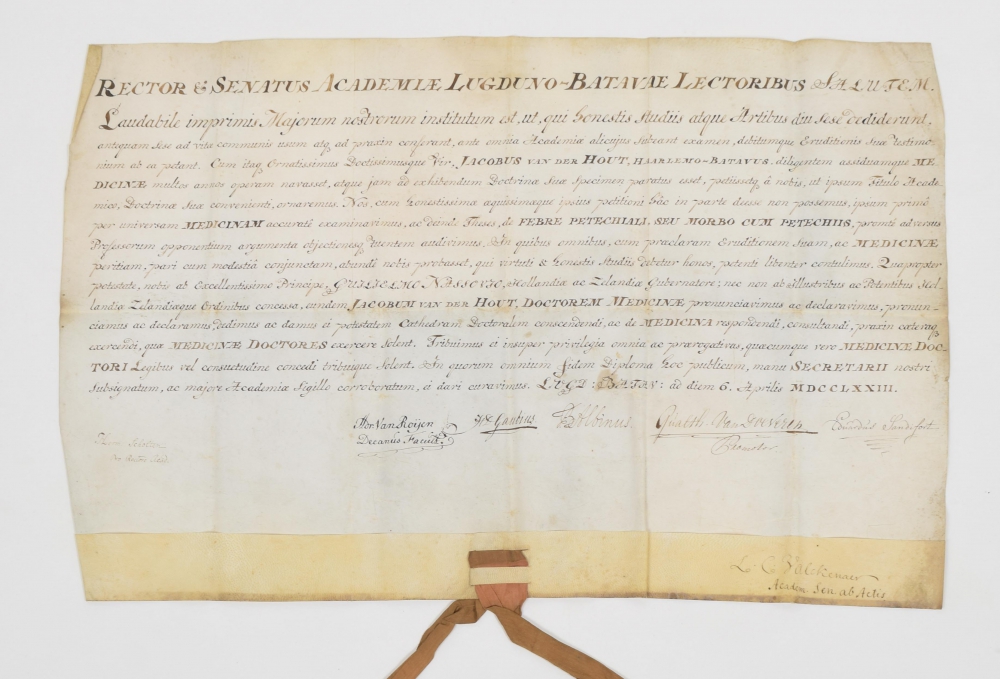 RECTOR & SENATUS ACADEMIÆ LUGDUNO-BATAVAE LECTORIBUS SALUTEM.
Laudabile imprimis Majorum nostrorum institutum est, ut, qui honestis studiis atque Artibus diu sese dediderunt,
antequam sese ad vitæ communis usum atq ad praxin conferant, ante omnia Academiæ alicujus subeant examen, debitumque Eruditionis suæ testimo-
nium ab ea petant. Cum itaq Ornatissimus Doctissimusque Vir, JACOBUS VAN DER HOUT, HAARLEMO-BATAVUS, diligentem assiduamque ME-
DICINÆ multos annos operam navasset, atque jam ad exhibendum Doctrinæ suæ specimen paratus esset, petiissetq à nobis, ut ipsum Titulo Acade-
mico, Doctrinæ suæ convenienti, ornaremus. Nos, cum honestissimæ æquissimæque ipsius petitioni hac in parte deesse non possemus, ipsum primò
per universam MEDICINAM accuratè examinavimus, ac deinde Theses, de FEBRE PETECHIALI, SEU MORBO CUM PETECHIIS, promtè adversus
Professorum opponentium argumenta objectionesq tuentem audivimus. In quibus omnibus, cum præclaram Eruditionem suam, ac MEDICINÆ
peritiam, pari cum modestiâ conjunctam, abundè nobis probasset, qui virtuti & honestis Studiis debetur honos, petenti libenter contulimus. Quapropter
potestate, nobis ab Excellentissimo Principe, GUILIELMO NASSOVIO, Hollandiæ ac Zelandiæ Gubernatore; nec non ab illustribus ac Potentibus Hol-
landiæ Zelandiæque Ordinibus concessa, eundem JACOBUM VAN DER HOUT, DOCTOREM MEDICINÆ pronunciavimus ac declaravimus, pronun-
ciamus ac declaramus, dedimus ac damus ei potestatem Cathedram Doctoralem conscendendi, ac de MEDICINA respondendi, consultandi, praxin cæteraq
exercendi, quæ MEDICINÆ DOCTORES exercere solent. Tribuimus ei insuper privilegia omnia ac prærogativas, quæcumque vero MEDICINÆ DOC-
TORI Legibus vel consuetudine concedi tribuique solent. In quorum omnium fidem Diploma hoc publicum, manu SECRETARII nostri
subsignatum, ac majore Academiæ Sigillo corroboratum, ei dari curavimus. LUGD: BATAV: ad diem 6. Aprilis MDCCLXXIII.
Adr. Van Roijen Gaubius Albinus Gualth. Van Doeveren Eduardus Sandifort
Decanus Facult.
L C Valckenaer
Academ Sen ab Actis